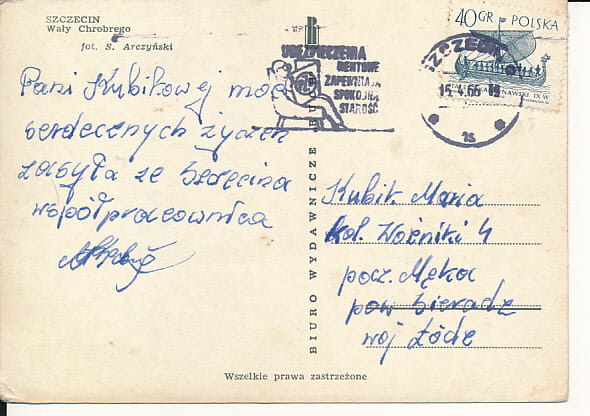 SZCZECIN
Wały Chrobrego
fot. S. Arczyński
Pani Kubikowej moc
serdecznych życzeń
zasyła ze Szczecina
współpracownica
UBEZPIECZENIA
RENTOWE
ZAPEWNIAJĄ
SPOKOJNĄ
STAROŚĆ
40 GR POLSKA
SZCZECIN
BIURO WYDAWNICZE RUCH
Kubik Maria
kol. Woźniki 4
pocz. Męka
pow Sieradz
woj Łódź
Wszelkie prawa zastrzeżone